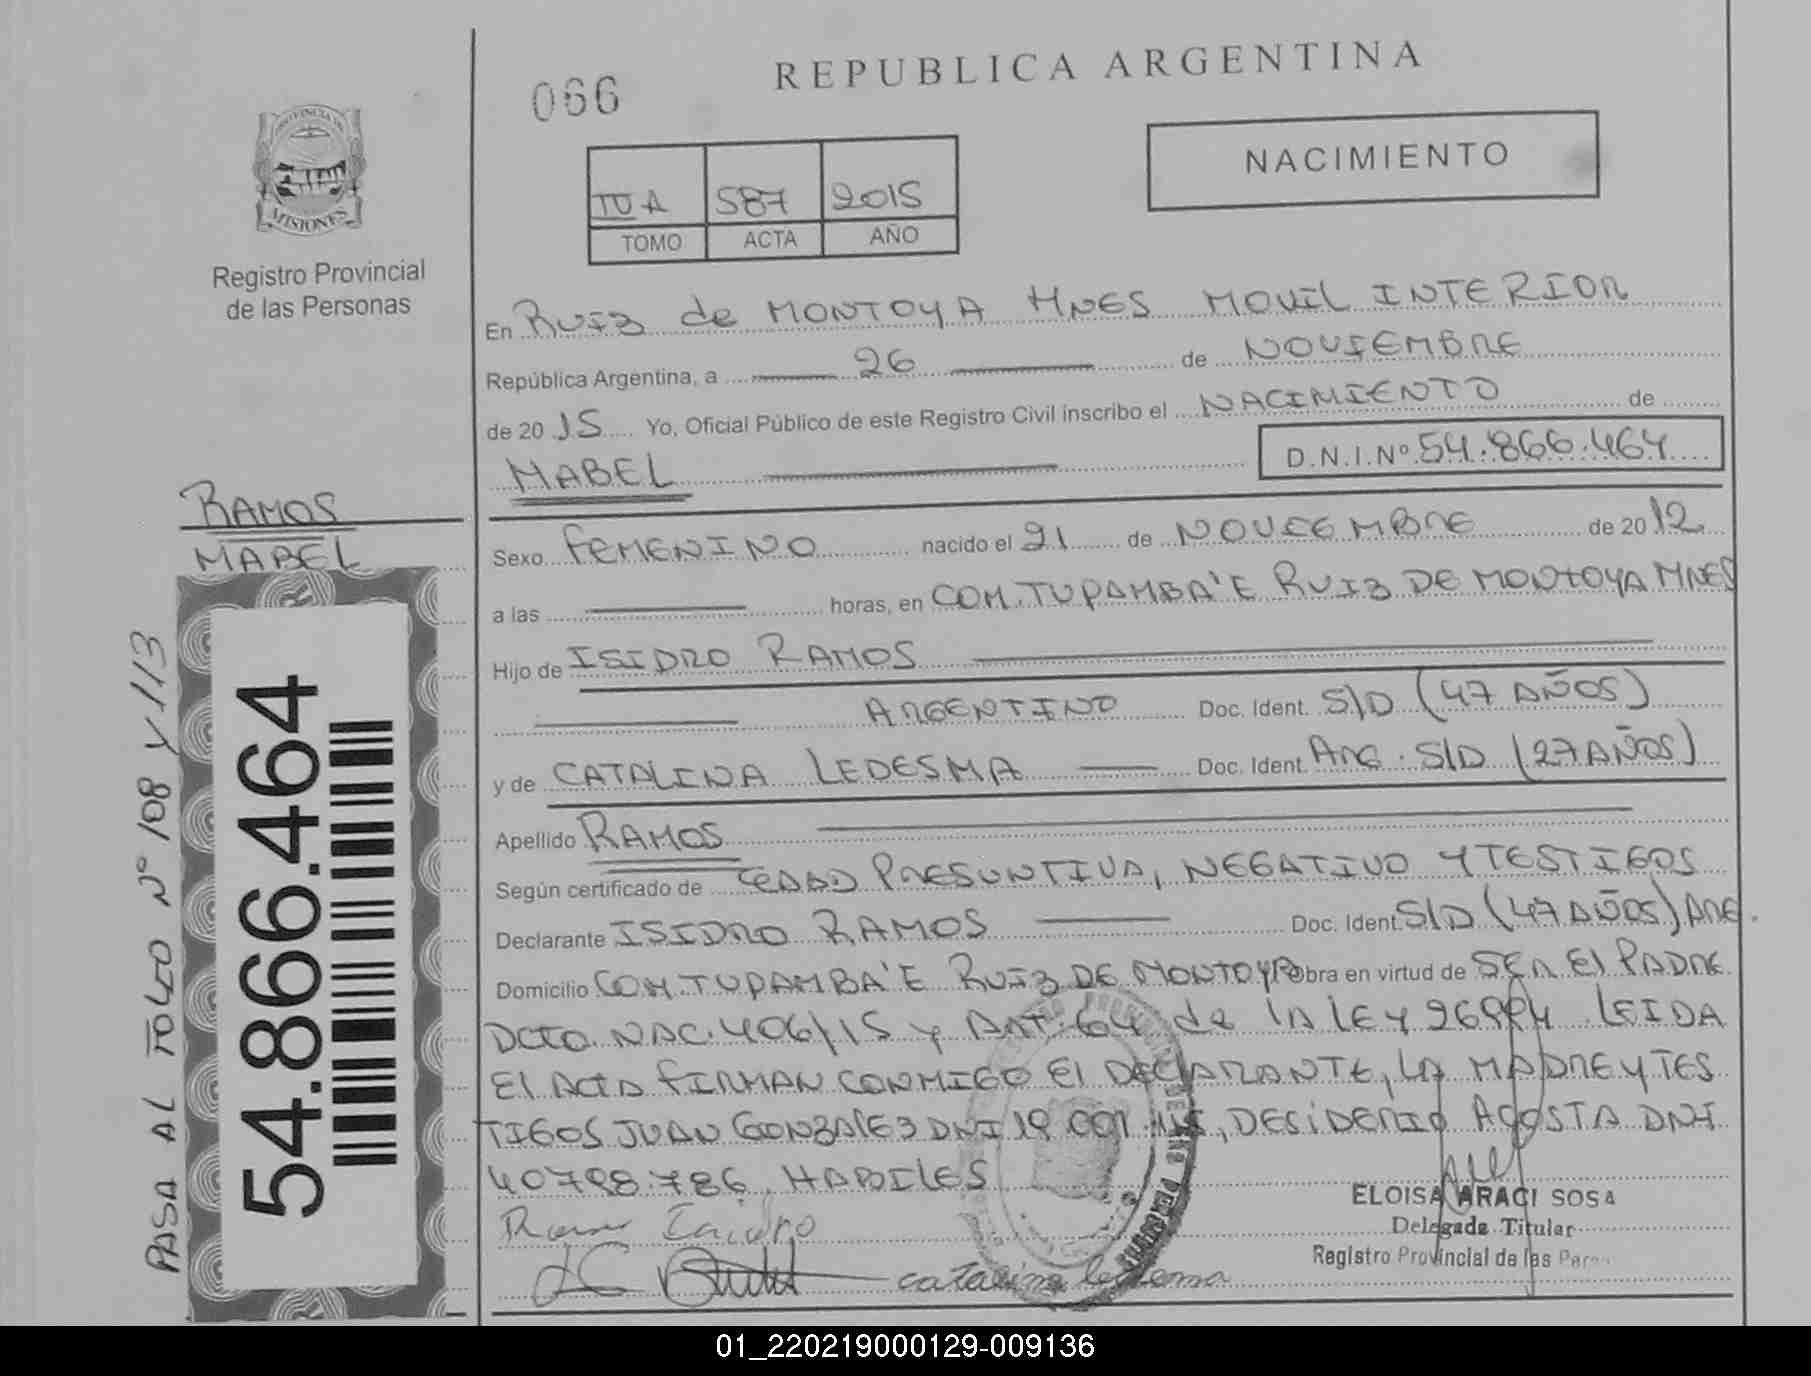 REPUBLICA ARGENTINA
066
NACIMIENTO
PROVINCIA DE
MISIONES
Registro Provincial
de las Personas
IU A 587 2015
TOMO ACTA AÑO
En RUIZ de MONTOYA MNES MOVIL INTERIOR
República Argentina, a 26 de NOVIEMBRE
de 2015 Yo, Oficial Público de este Registro Civil inscribo el NACIMIENTO de
MABEL D.N.I.Nº 54.866.464
RAMOS
MABEL
Sexo FEMENINO nacido el 21 de NOVIEMBRE de 2012
a las horas, en COM. TUPAMBA'E RUIZ DE MONTOYA MNES
Hijo de ISIDRO RAMOS
ARGENTINO Doc. Ident. S/D (47 AÑOS)
y de CATALINA LEDESMA Doc. Ident. ARG. S/D (27 AÑOS)
Apellido RAMOS
Según certificado de EDAD PRESUNTIVA, NEGATIVO Y TESTIGOS
Declarante ISIDRO RAMOS Doc. Ident. S/D (47 AÑOS) ARG.
Domicilio COM. TUPAMBA'E RUIZ DE MONTOYA Obra en virtud de SER El PADRE
DCTO. NAC. 406/15 y ART. 64 de la LEY 26994. LEIDA
El ACTA FIRMAN CONMIGO El DECLARANTE, LA MADRE Y TES
TIGOS JUAN GONZALEZ DNI , DESIDERIO ACOSTA DNI
40798786, HABILES
Ramos Isidro
catalina ledesma
ELOISA ARACI SOSA
Delegada Titular
Registro Provincial de las
PASA AL FOLIO Nº 108 Y 113
54.866.464
01_220219000129-009136